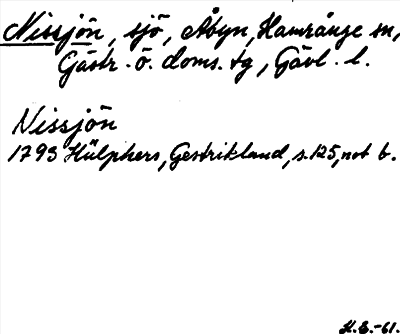 Nissjön, sjö, Åbyn, Hamrånge sn,
Gästr. ö. doms. tg, Gävl. l.
Nissjön
1793 Hülphers, Gestrikland, s. 125, not b.
H.E.-61.